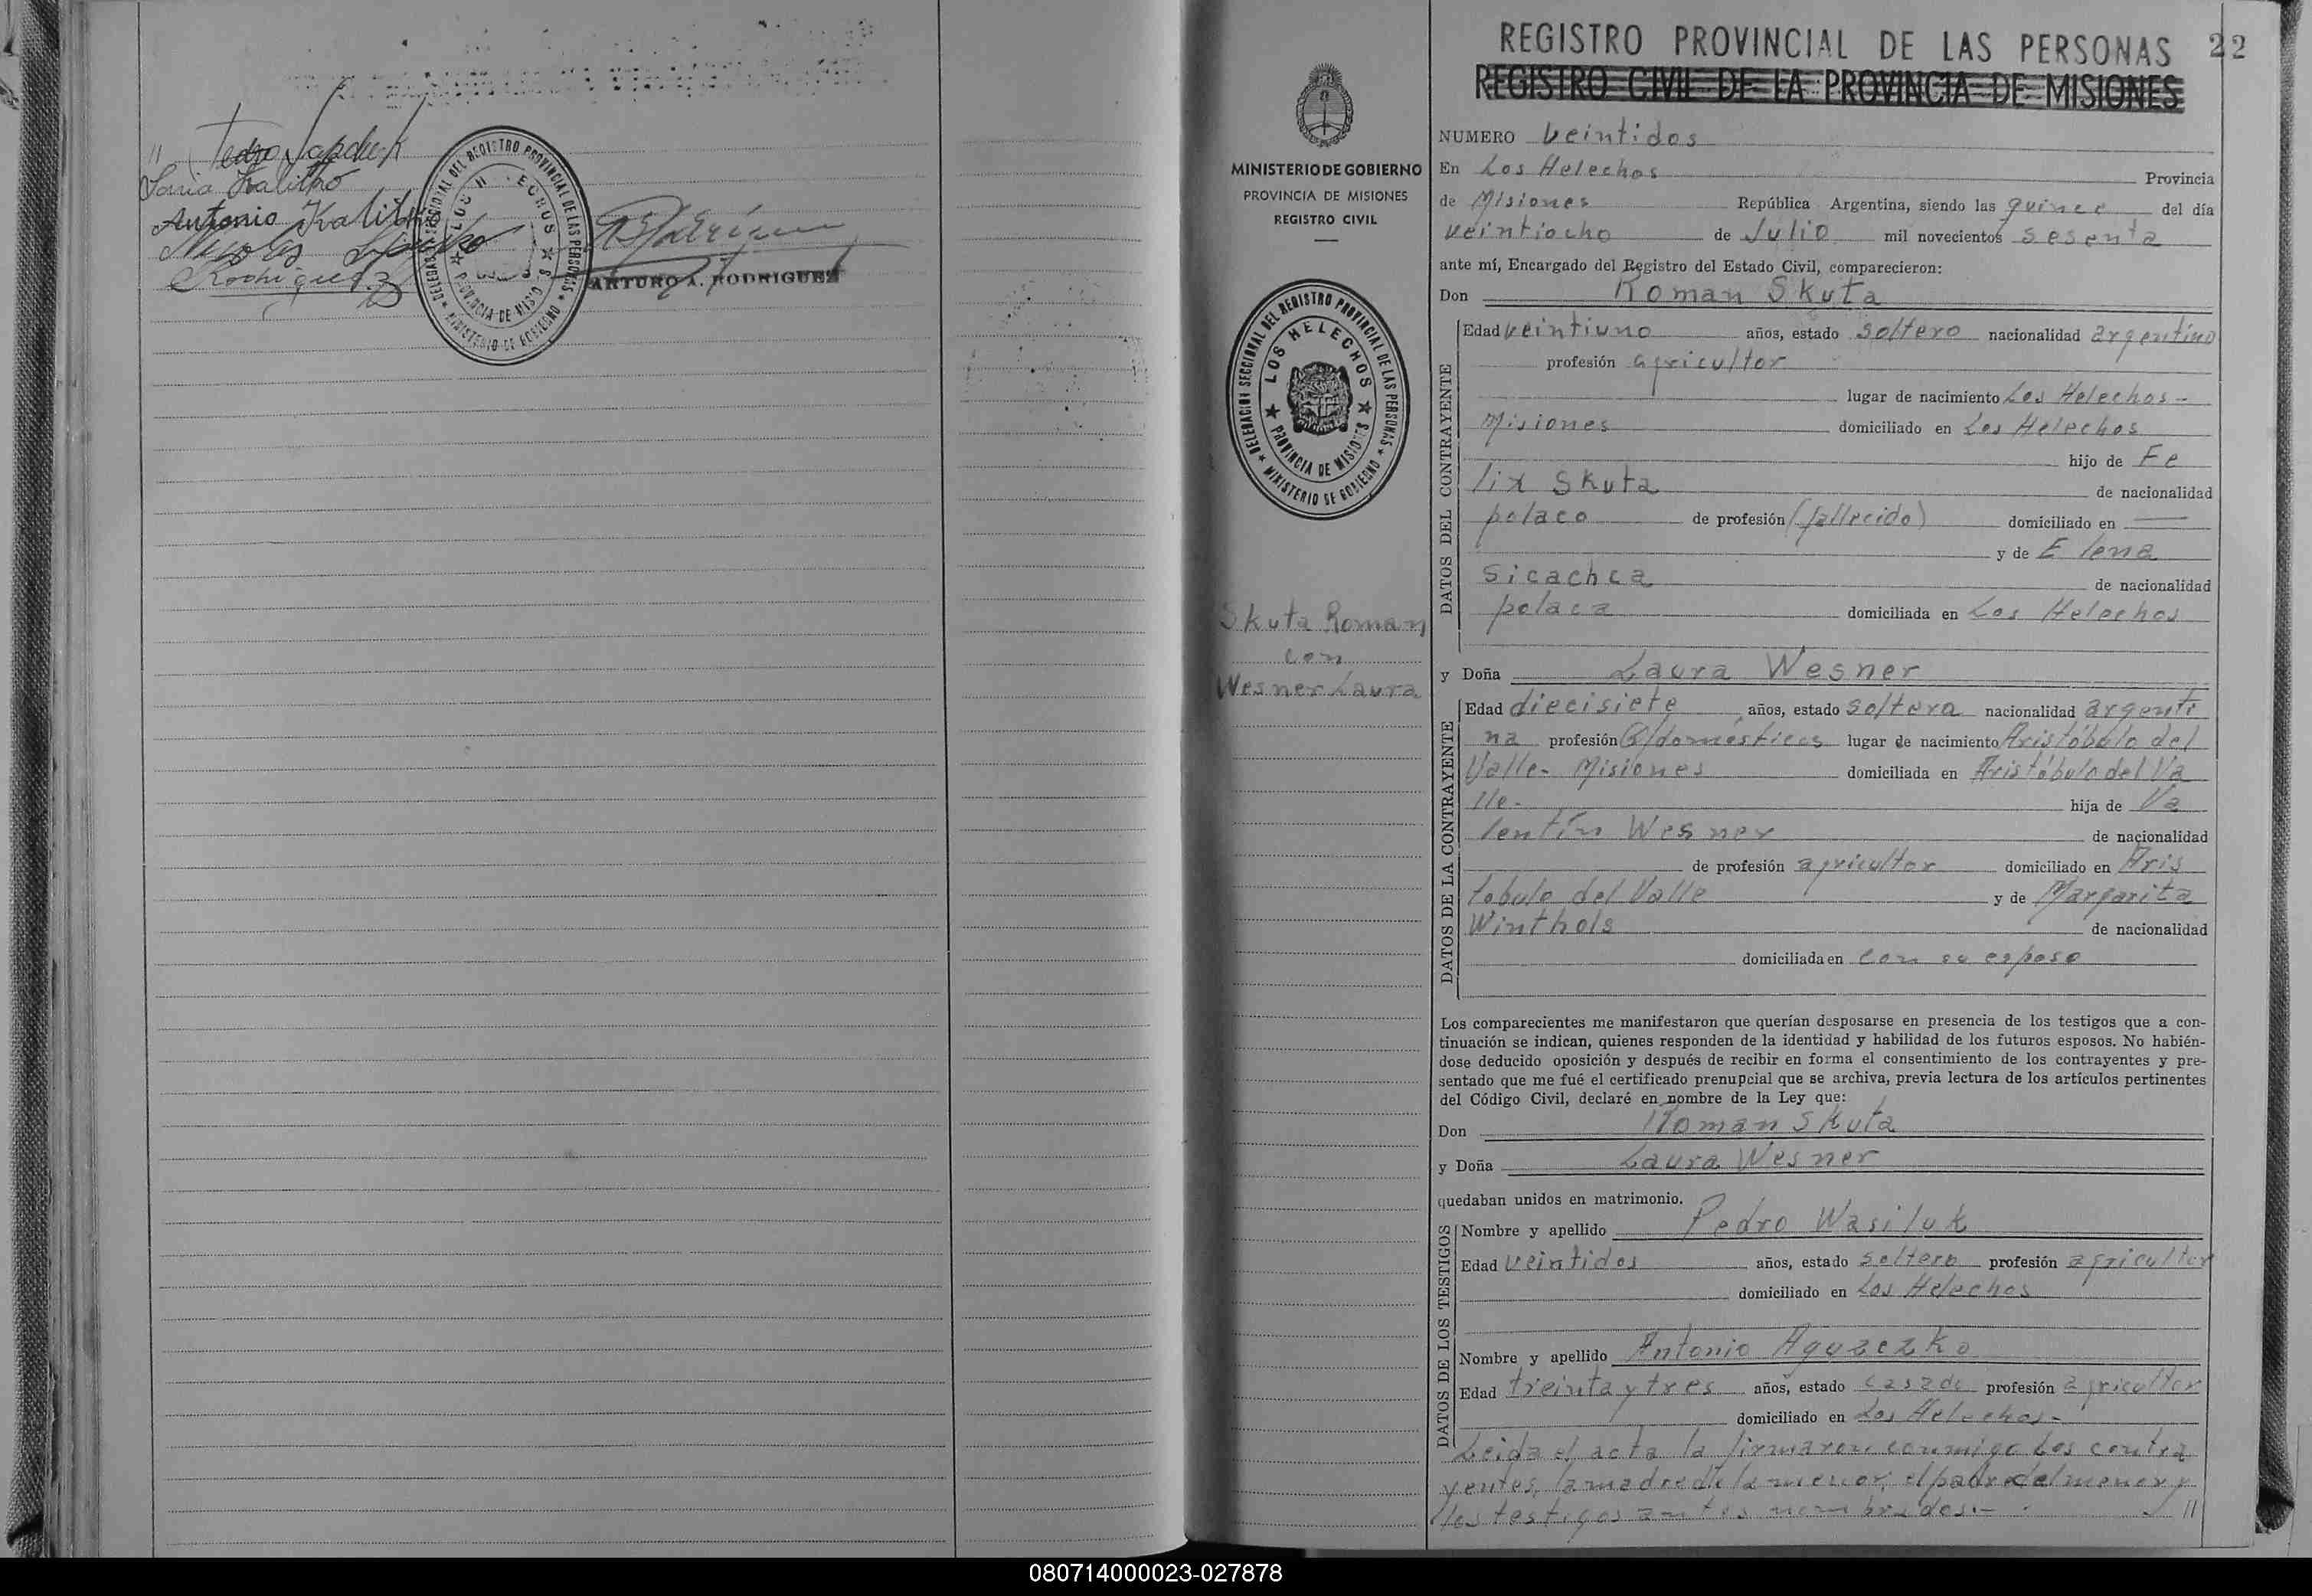 //
Sonia Kalitko
Antonio Kalitko
Rodriguez
ARTURO A. RODRIGUEZ
DELEGACION SECCIONAL DEL REGISTRO PROVINCIAL DE LAS PERSONAS
MINISTERIO DE GOBIERNO
PROVINCIA DE MISIONES
MINISTERIO DE GOBIERNO
PROVINCIA DE MISIONES
REGISTRO CIVIL
DELEGACION SECCIONAL DEL REGISTRO PROVINCIAL DE LAS PERSONAS
MINISTERIO DE GOBIERNO
LOS HELECHOS
PROVINCIA DE MISIONES
Skuta Roman
con
Wesner Laura
REGISTRO PROVINCIAL DE LAS PERSONAS 22
REGISTRO CIVIL DE LA PROVINCIA DE MISIONES
NUMERO Veintidos
En Los Helechos Provincia
de Misiones República Argentina, siendo las quince del día
veintiocho de Julio mil novecientos sesenta
ante mí, Encargado del Registro del Estado Civil, comparecieron:
Don Roman Skuta
DATOS DEL CONTRAYENTE
Edad veintiuno años, estado soltero nacionalidad argentino
profesión agricultor
lugar de nacimiento Los Helechos -
Misiones domiciliado en Los Helechos
hijo de Fe
lix Skuta de nacionalidad
polaco de profesión (fallecido) domiciliado en —
y de Elena
Sicachca de nacionalidad
polaca domiciliada en Los Helechos
y Doña Laura Wesner
DATOS DE LA CONTRAYENTE
Edad diecisiete años, estado soltera nacionalidad argenti
na profesión Q/domésticos lugar de nacimiento Aristóbulo del
Valle - Misiones domiciliada en Aristóbulo del Va
lle - hija de Va
lentín Wesner de nacionalidad
de profesión agricultor domiciliado en Aris
tobulo del Valle y de Margarita
Winthols de nacionalidad
domiciliada en con su esposo
Los comparecientes me manifestaron que querían desposarse en presencia de los testigos que a con-
tinuación se indican, quienes responden de la identidad y habilidad de los futuros esposos. No habién-
dose deducido oposición y después de recibir en forma el consentimiento de los contrayentes y pre-
sentado que me fué el certificado prenupcial que se archiva, previa lectura de los artículos pertinentes
del Código Civil, declaré en nombre de la Ley que:
Don Roman Skuta
y Doña Laura Wesner
quedaban unidos en matrimonio.
DATOS DE LOS TESTIGOS
Nombre y apellido Pedro Wasiluk
Edad veintidos años, estado soltero profesión agricultor
domiciliado en Los Helechos
Nombre y apellido Antonio Aguzczko
Edad treinta y tres años, estado casado profesión agricultor
domiciliado en Los Helechos -
Leida el acta la firmaron conmigo los contra
yentes, la madre de la menor, el padre del menor y
los testigos antes nombrados. - //
080714000023-027878